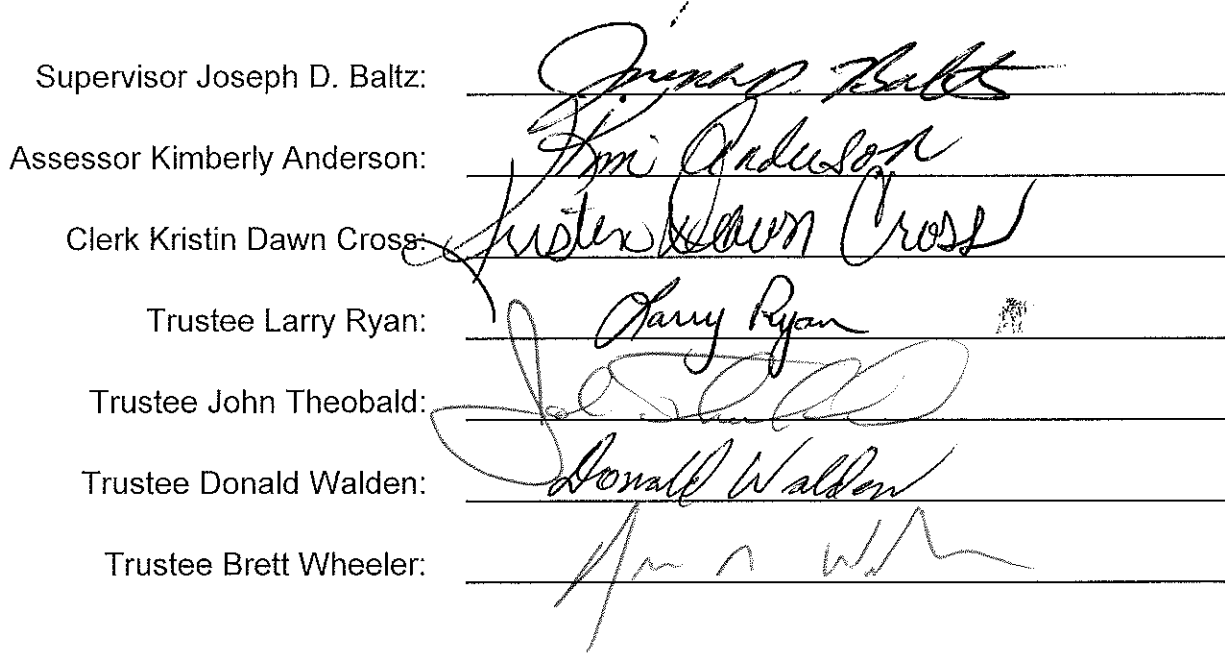 Supervisor Joseph D. Baltz: Joseph D. Baltz
Assessor Kimberly Anderson: Kim Anderson
Clerk Kristin Dawn Cross: Kristin Dawn Cross
Trustee Larry Ryan: Larry Ryan
Trustee John Theobald: John Theobald
Trustee Donald Walden: Donald Walden
Trustee Brett Wheeler: